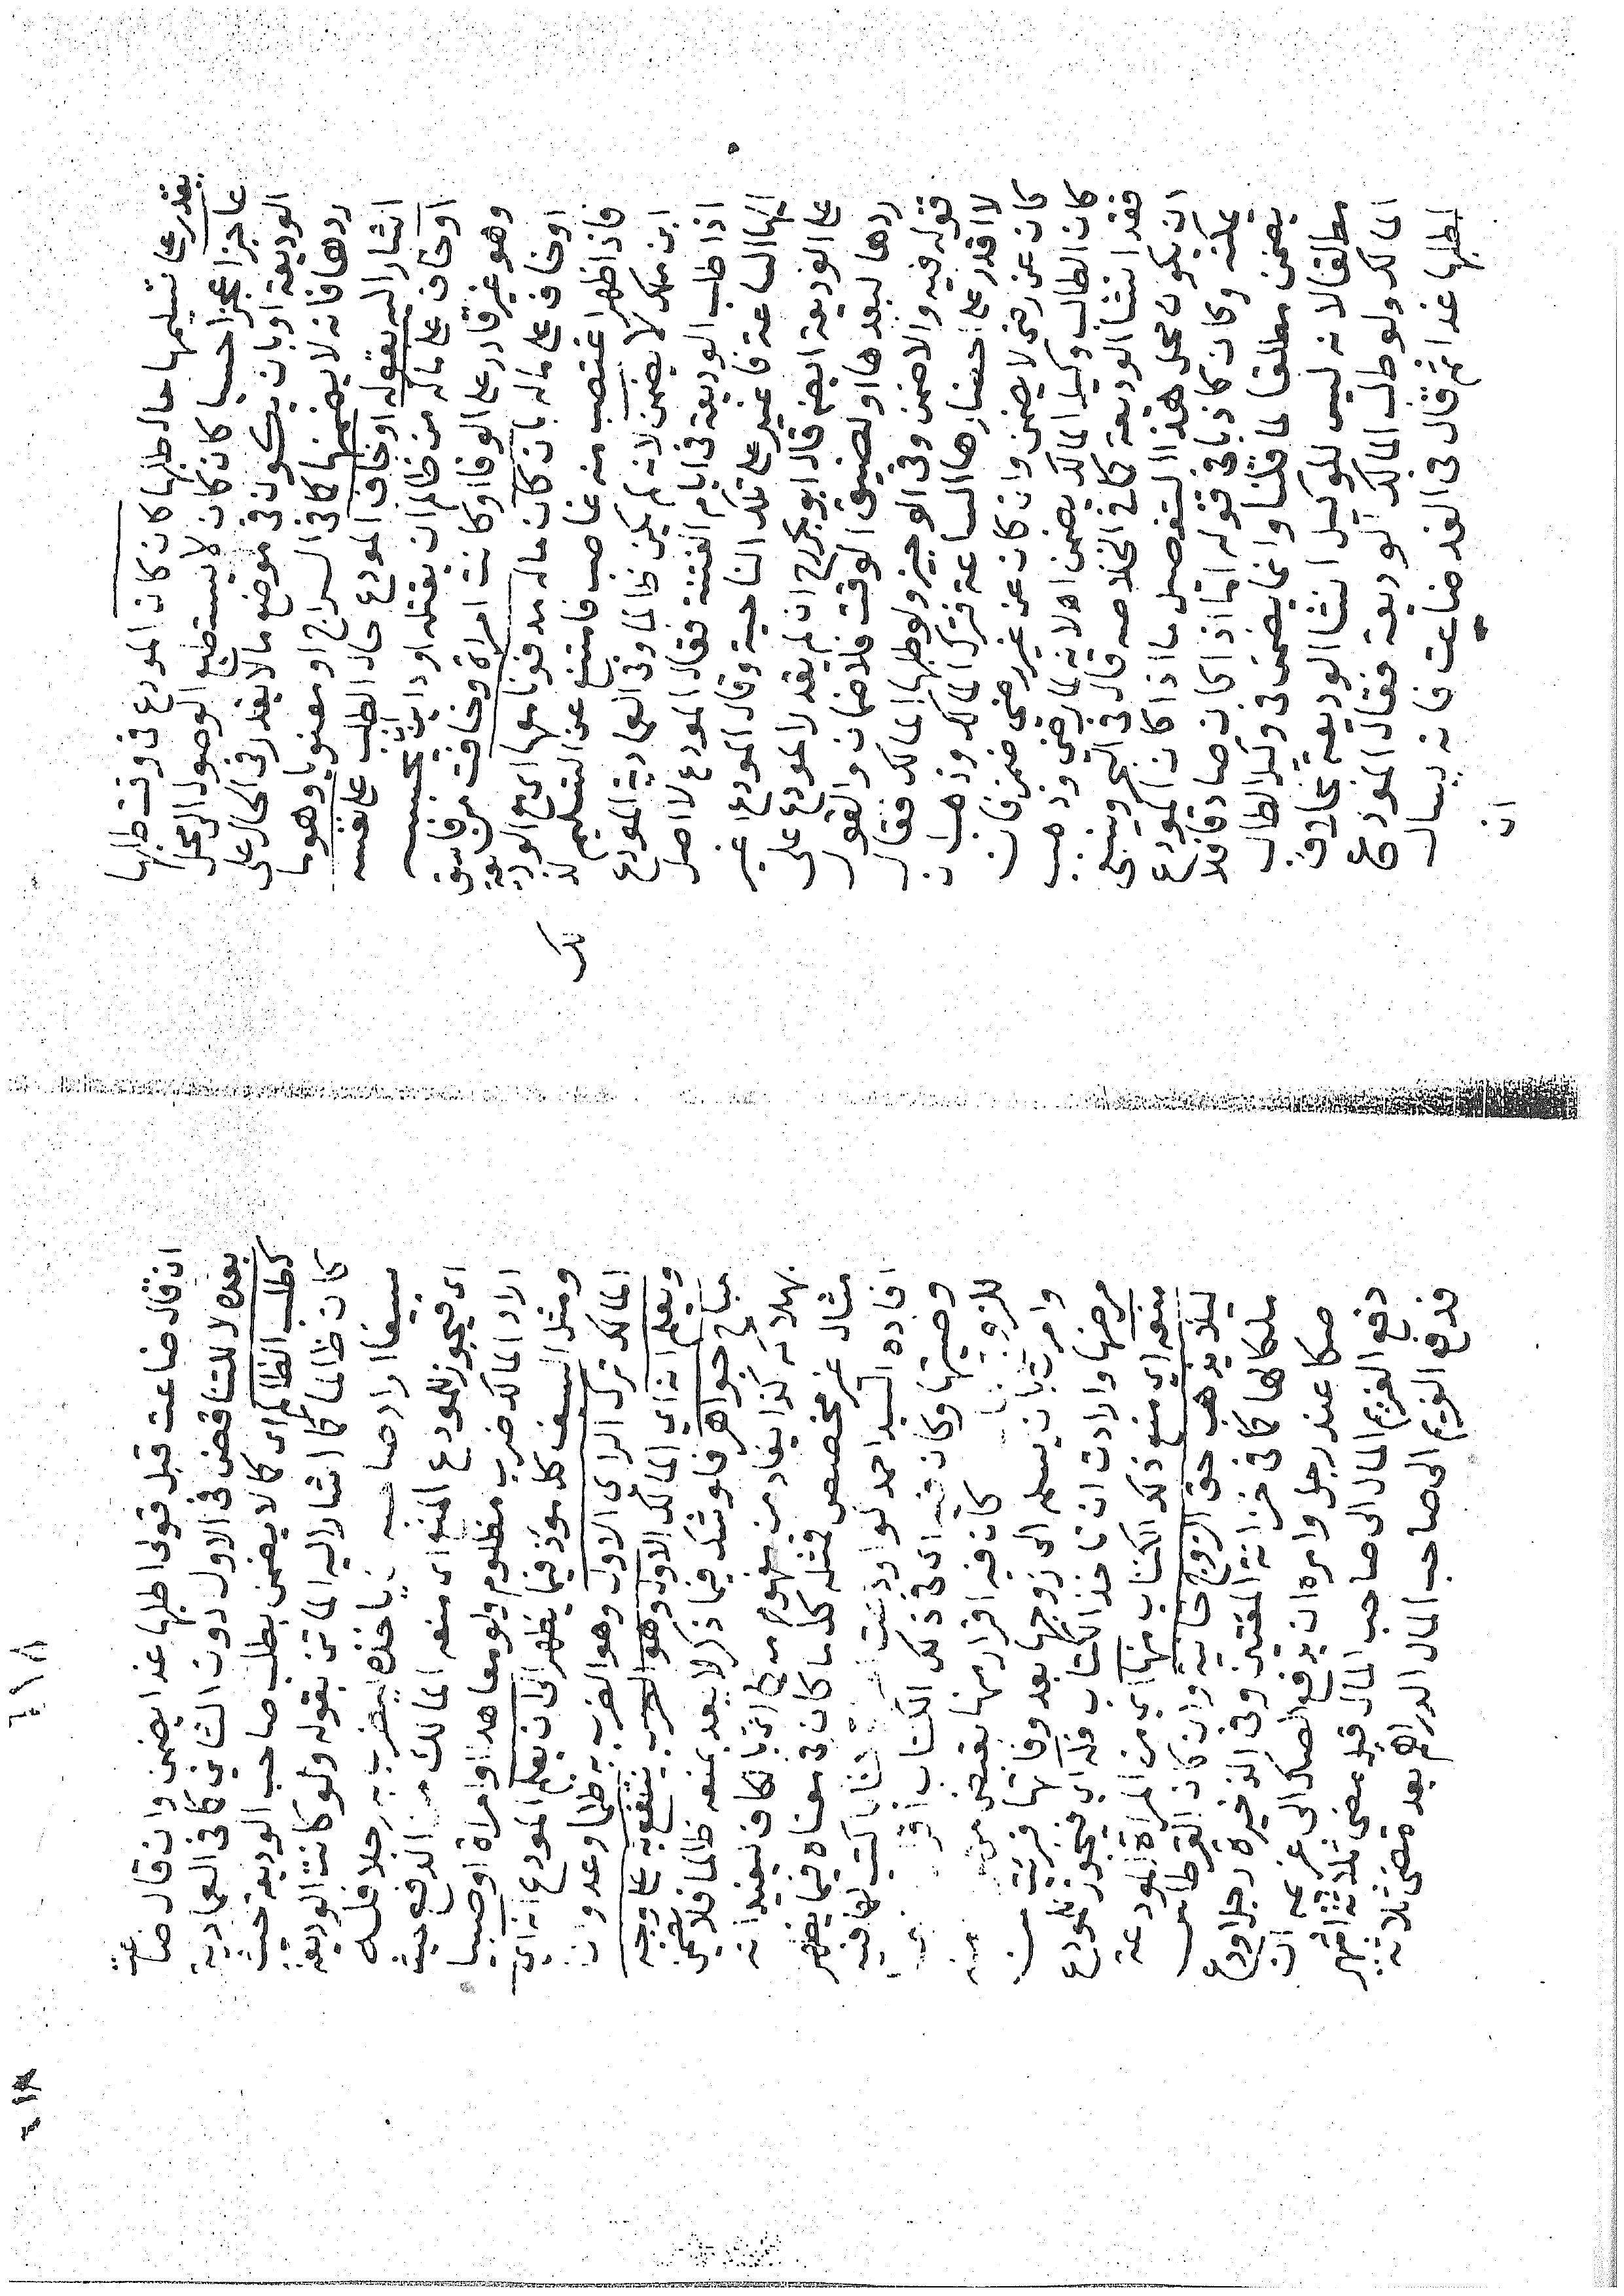 يقدر على تسليمها حال طلبها كان كان المودع في وقت طلبها
عاجزا عجزا حسيا كان كان لا يستطيع الوصول الى محل
الوديعة او بان يكون في موضع ما لا يقدر في الحال على
ردها فانه لا يضمنها كما في السراج او معنويا وهو ما
اشار اليه بقوله او خاف المودع حال الطلب على نفسه
او خاف على ماله من ظالم ان يقتله او دائن يحبسه
وهو غير قادر على الوفا او كانت امراة وخافت من فاسق
او خاف على ماله بان كان ماله مدفونا معها اي مع الوديعة
فاذا ظهر اغتصب منه غاصب فامتنع عن التسليم لذلك
ابن ملك لا يضمن لانه لم يكن ظالما وفي العمادية المودع
اذا طلب الوديعة في ايام الفتنة فقال المودع لا اصل
اليها الساعة فاغير على تلك الناحية وقال المودع اغير
على الوديعة ايضا قال ابو بكر رح ان لم يقدر المودع على
ردها لبعدها او لضيق الوقت فلا ضمان والقول
قوله فيه والا ضمن وفي الوجيز ولو طلبها المالك فقال
لا اقدر على احضارها الساعة فترك المالك وذهب ان
كان عن رضى لا يضمن وان كان عن غير رضى ضمن فان
كان الطالب وكيل المالك يضمن اهـ لانه لما رضي وذهب
فقد انشا الوديعة كما في الخلاصه قال في البحر وينبغي
ان يكون محل هذا التفصيل ما اذا كان المودع
يمكنه وكان كاذبا في قوله اما اذا كان صادقا فلا
يضمن مطلقا لما قلنا وانما يضمن في وكيل الطالب
مطلقا لانه ليس للوكيل انشا الوديعة بخلاف
المالك ولو طلب المالك الوديعة فقال المودع
اطلبها غدا ثم قال في الغد ضاعت فانه يسال
ان
٤١٨
ان قال ضاعت قبل قولي اطلبها غدا يضمن وان قال ضاعت
بعده لا للتناقض في الاول دون الثاني كما في العمادية
كطلب الظالم اي كما لا يضمن بطلب صاحب الوديعة حيث
كان ظالما كما اشار اليه الماتن بقوله ولو كانت الوديعة
سيفا اراد صاحبه ان ياخذه ليضرب به رجلا فله
اي فيجوز للمودع المنع اي منعه المالك من الدفع حيث
اراد المالك ضرب مظلوم ولو معاهدا او امراة او صبيا
ومثل السيف كل مؤذ فيما يظهر الى ان يعلم المودع انه اي
المالك ترك الراى الاول وهو الضرب به ظلما وعدوان
ويعلم انه اي المالك الاول وهو الضرب ينتفع به على وجه
مباح جواهر فلو شك فيما ذكر لا يعد بمنعه ظالما فلا يضمن
بهلاكه كذا يفاد من مفهوم مطلق اتيانكاف نيفيد انه
مثال غير مخصص فمثله كل ما كان في معناه فيما يظهر
افاده السيد احمد لو اودعت كتابا كتب لها فيه
وصيتها وكان فيه اي في ذلك الكتاب اقر
للزوج كان فيه اقرار منها بقبض مهرها منه
وامرت بان يسلم الى زوجها بعد وفاتها فبرئت من
مرضها وارادت ان تاخذ الكتاب فله اي فيجوز للمودع
منعه اي منع ذلك الكتاب منها اي من المراة المودعة
ليلا يذهب حق الزوج خانية وان كان القرطاس
ملكا لها كما في خزانة المفتين وفي الذخيرة رجل اودع
صكا عند رجل وامره ان يدفع الصك الى غريمه ان
دفع الغريم المال الى صاحب المال قبل مضى ثلاثة اشهر
فدفع الغريم الى صاحب المال الدراهم بعد مضى ثلاثة
٤١٨